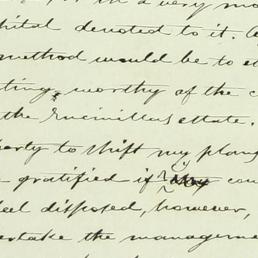 in a very mo
pital devoted to it. A
method would be to e
ting, worthy of the c
the Encinillas estate.
erty to shift my plan
gratified if you cou
eel disposed, however,
ertake the manageme